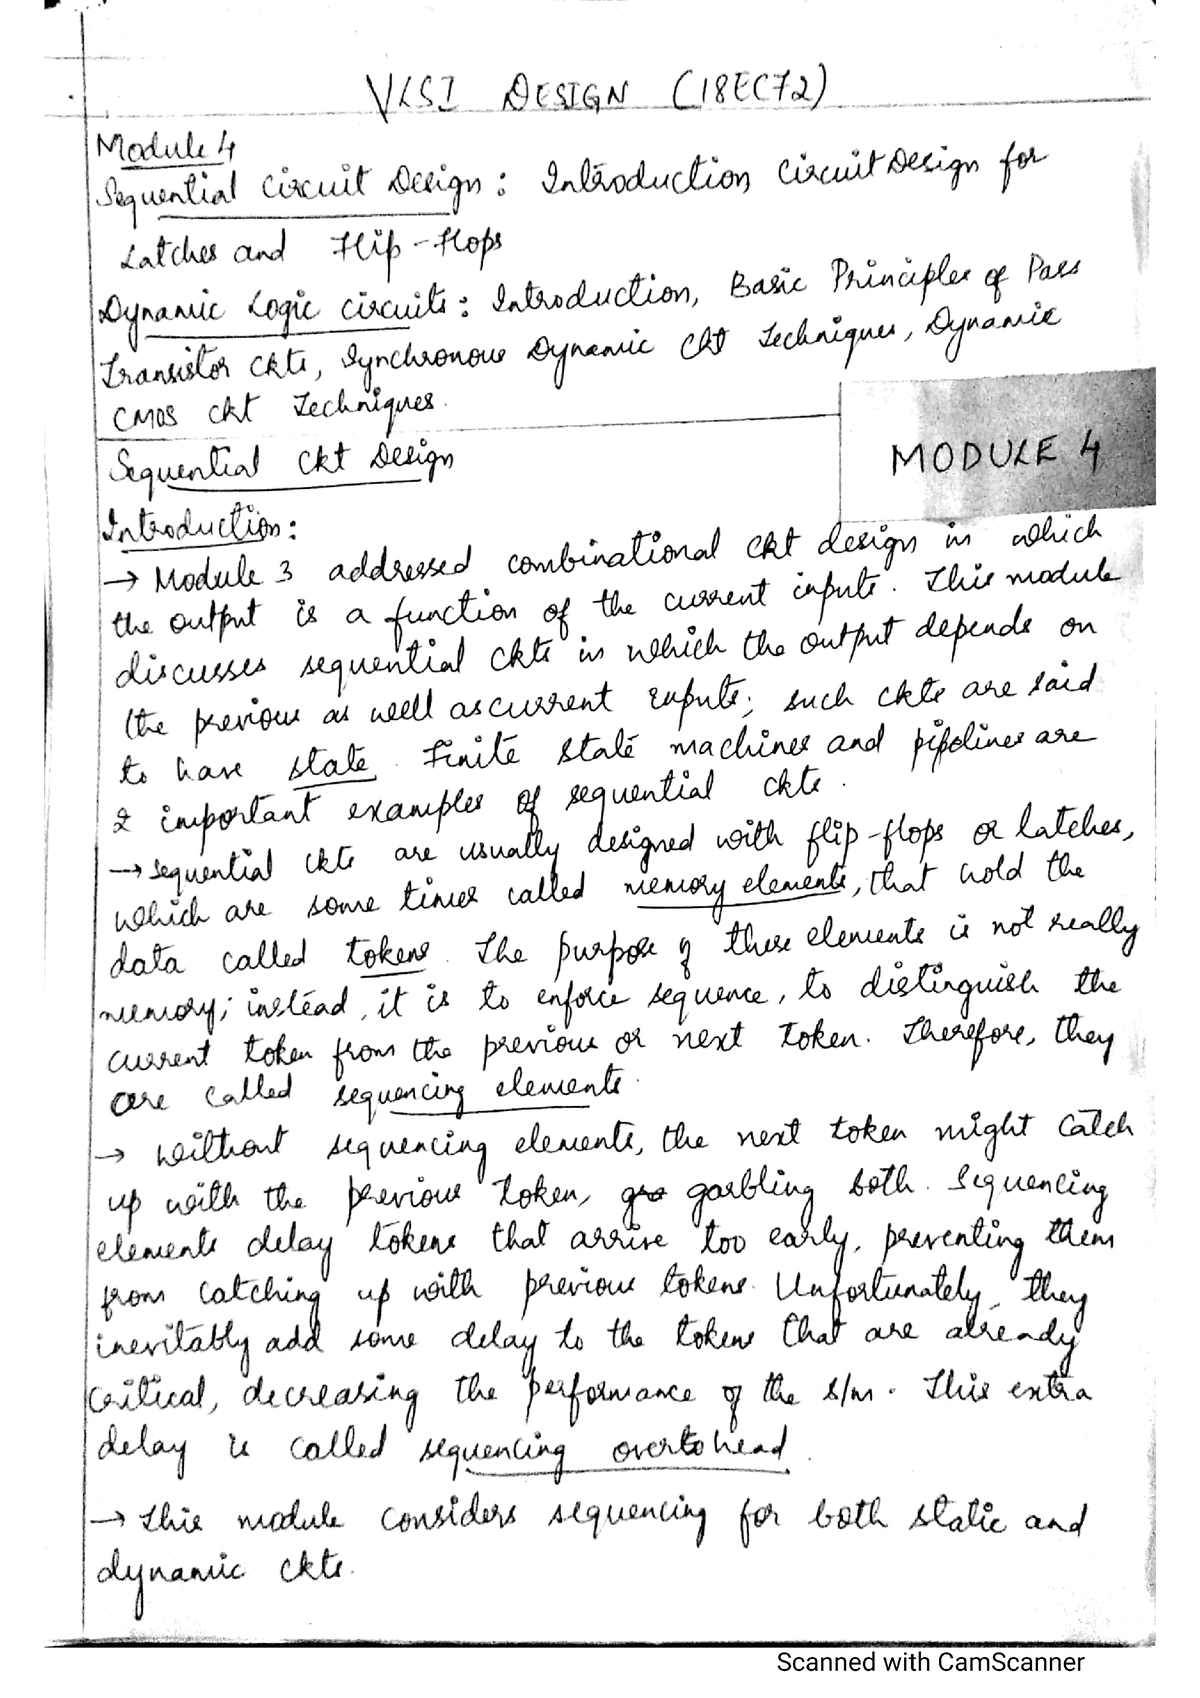 VLSI DESIGN (18EC72)
Module 4
Sequential Circuit Design: Introduction Circuit Design for
Latches and Flip-Flops
Dynamic Logic circuits: Introduction, Basic Principles of Pass
Transistor Ckts, Synchronous Dynamic Ckt Techniques, Dynamic
CMOS Ckt Techniques.
MODULE 4
Sequential Ckt Design
Introduction:
→ Module 3 addressed combinational ckt design in which
the output is a function of the current inputs. This module
discusses sequential ckts in which the output depends on
the previous as well as current inputs; such ckts are said
to have state. Finite state machines and pipelines are
2 important examples of sequential ckts.
→ Sequential ckts are usually designed with flip-flops or latches,
which are some times called memory elements, that hold the
data called tokens. The purpose of these elements is not really
memory; instead, it is to enforce sequence, to distinguish the
current token from the previous or next token. Therefore, they
are called sequencing elements.
→ Without sequencing elements, the next token might catch
up with the previous token, gra garbling both. Sequencing
elements delay tokens that arrive too early, preventing them
from catching up with previous tokens. Unfortunately, they
inevitably add some delay to the tokens that are already
critical, decreasing the performance of the s/m. This extra
delay is called sequencing overhead.
→ This module considers sequencing for both static and
dynamic ckts.
Scanned with CamScanner